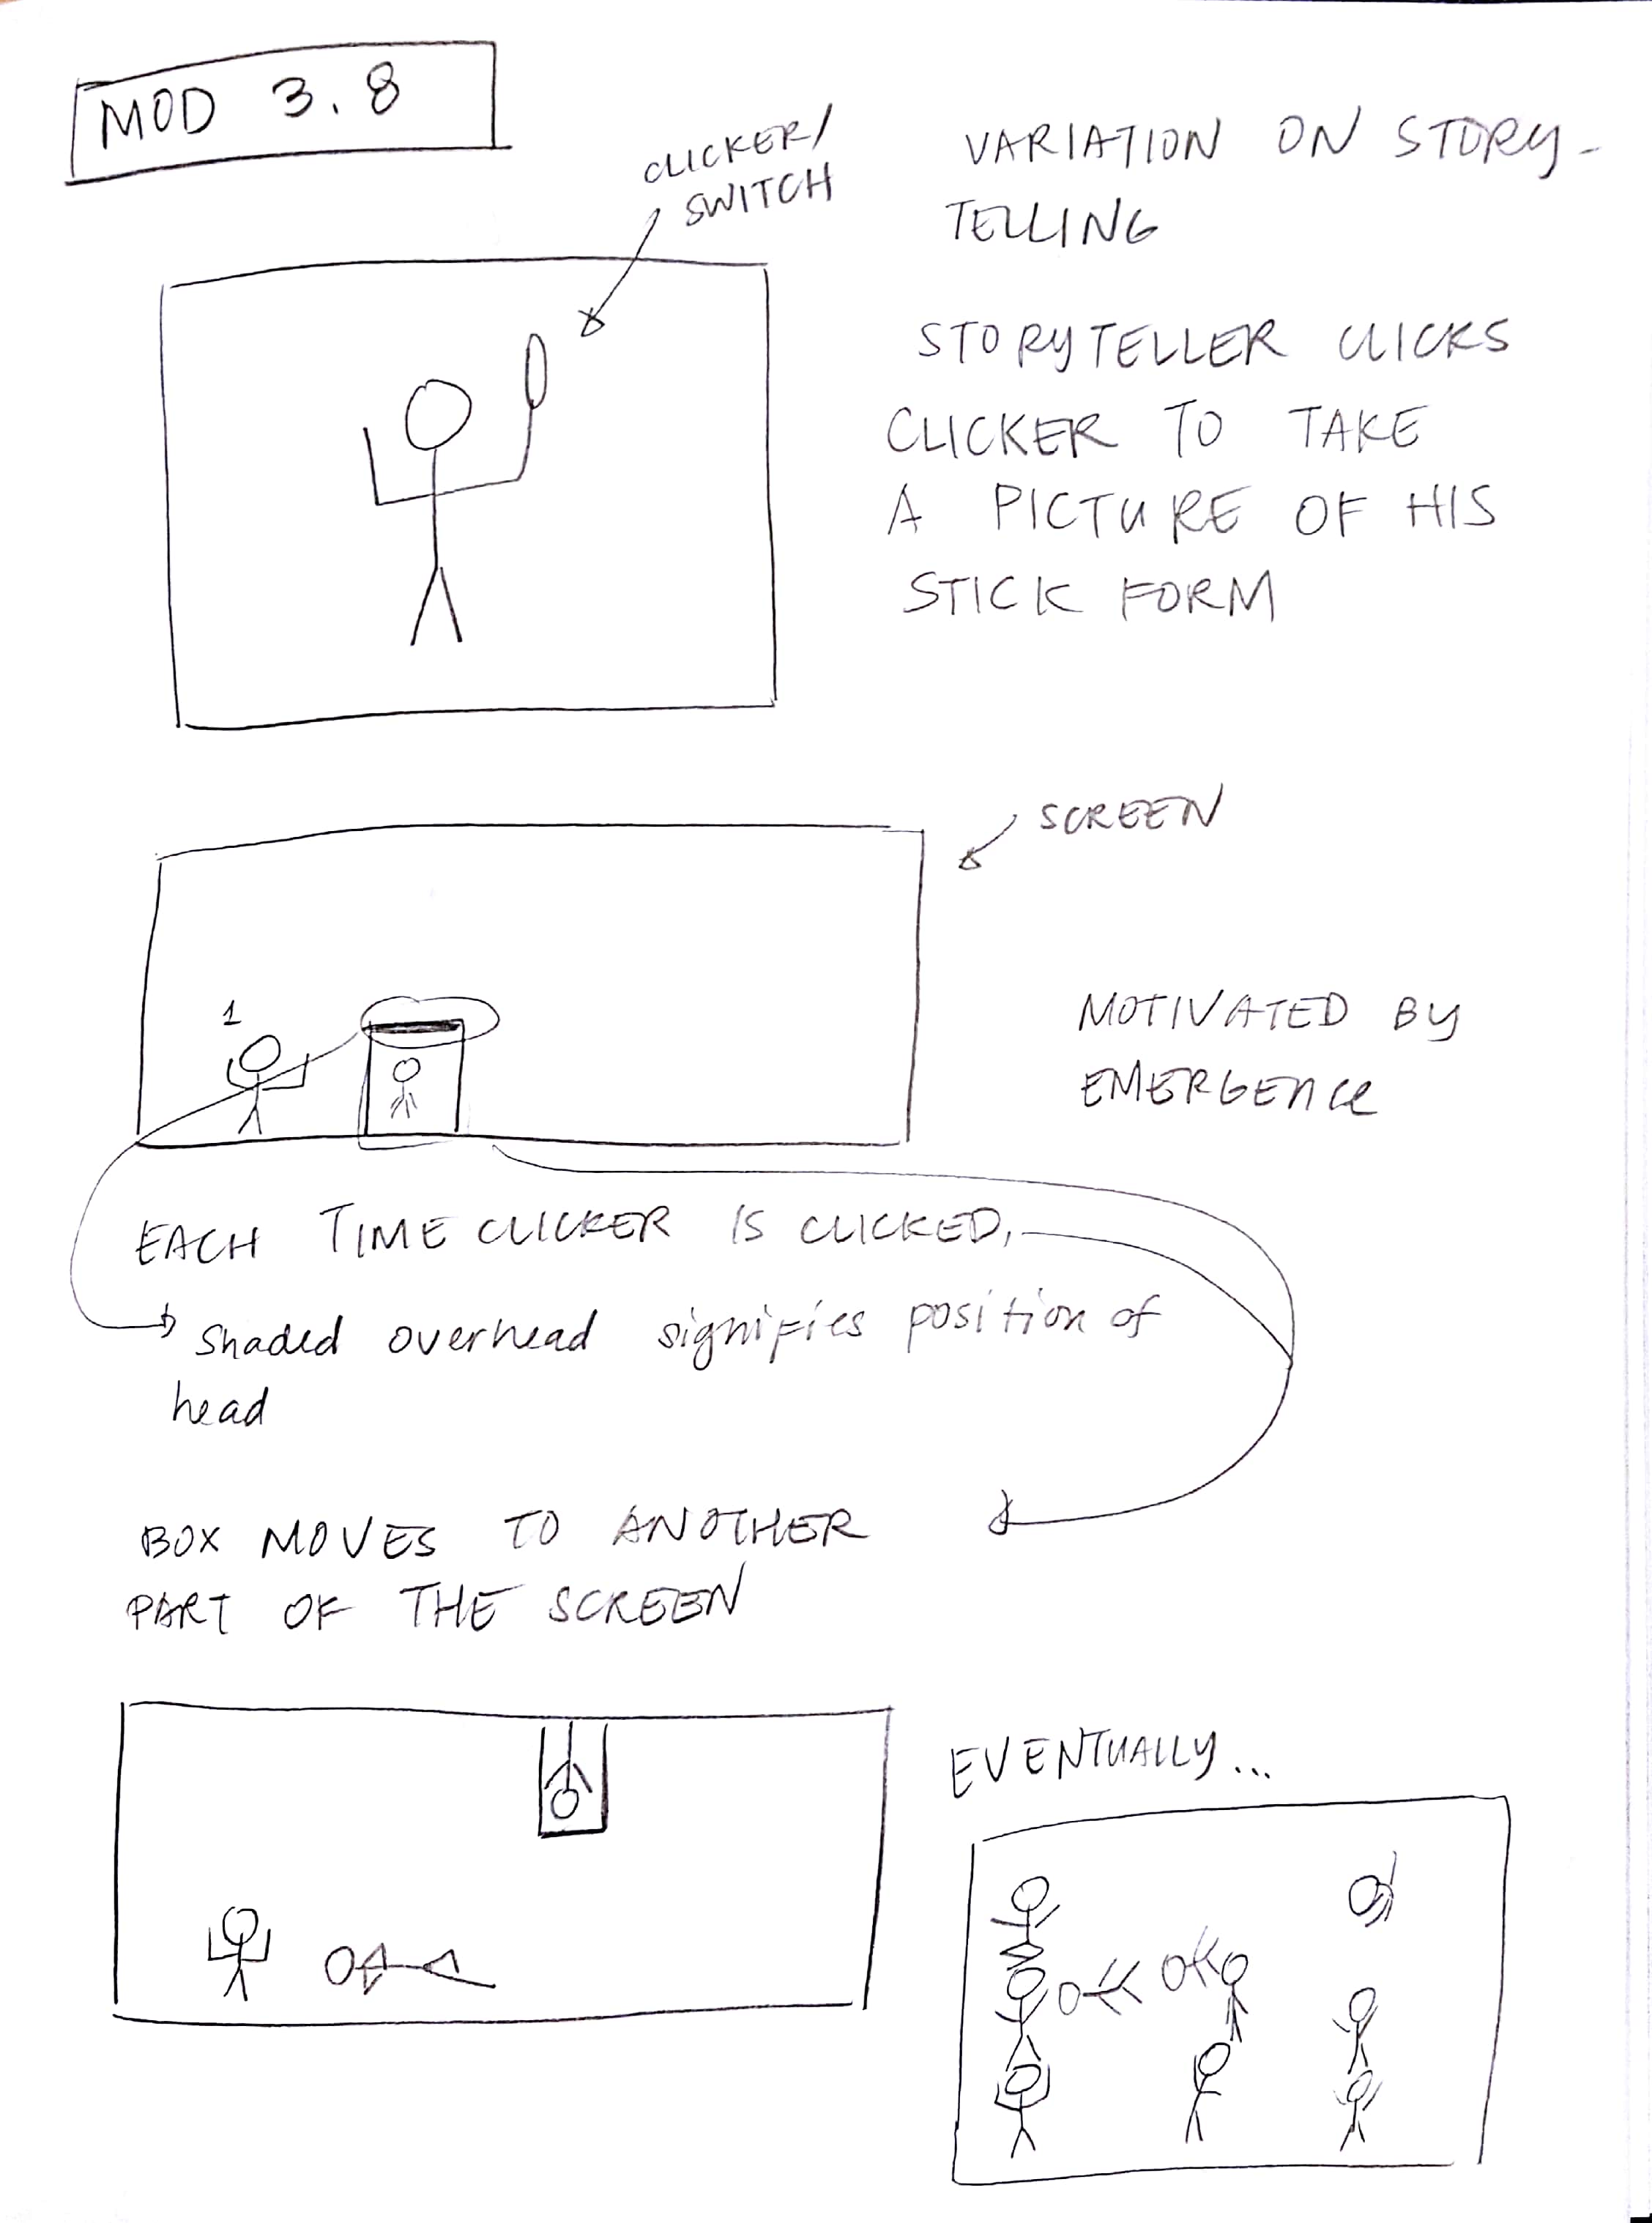 MOD 3.8
CLICKER/
SWITCH
VARIATION ON STORY-
TELLING
STORYTELLER CLICKS
CLICKER TO TAKE
A PICTURE OF HIS
STICK FORM
SCREEN
1
MOTIVATED BY
EMERGENCE
EACH TIME CLICKER IS CLICKED,
shaded overhead signifies position of
head
BOX MOVES TO ANOTHER
PART OF THE SCREEN
EVENTUALLY...